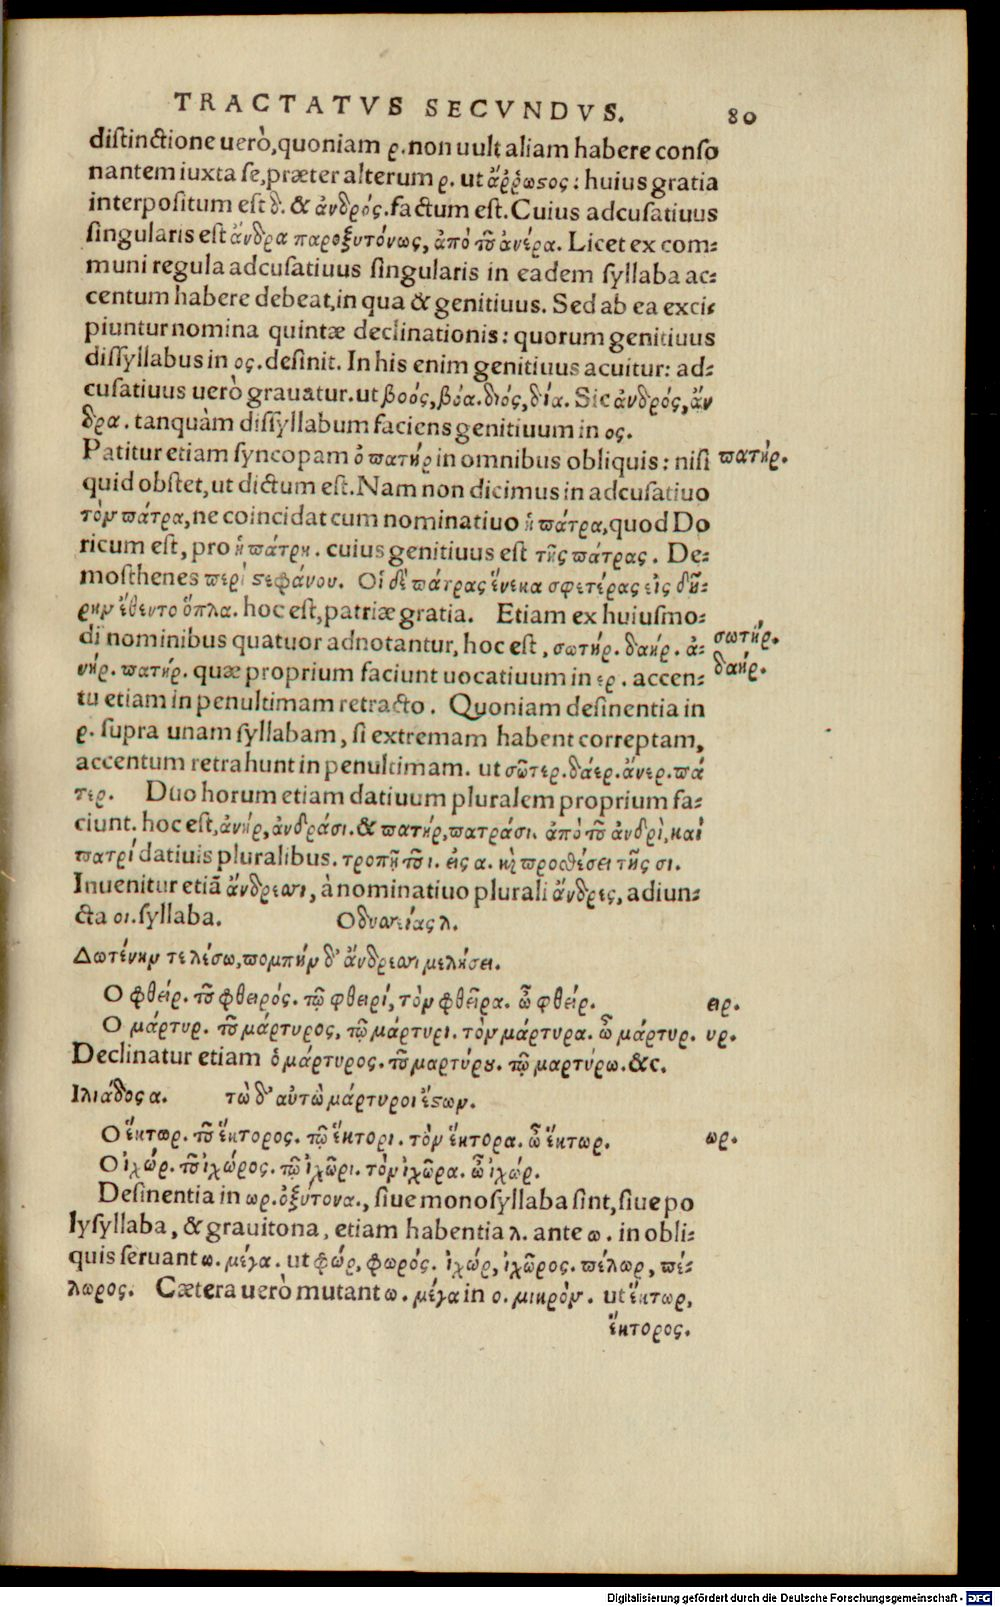 TRACTATVS SECVNDVS. 80
distinctione uerò, quoniam ρ. non uult aliam habere conso
nantem iuxta se, præter alterum ρ. ut ἄῤῥωστος: huius gratia
interpositum est δ. & ἀνδρός. factum est. Cuius adcusatiuus
singularis est ἄνδρα παροξυτόνως, ἀπὸ τοῦ ἀνέρα. Licet ex com:
muni regula adcusatiuus singularis in eadem syllaba ac:
centum habere debeat, in qua & genitiuus. Sed ab ea exci:
piuntur nomina quintæ declinationis: quorum genitiuus
dissyllabus in ος. desinit. In his enim genitiuus acuitur: ad:
cusatiuus uerò grauatur. ut βοός, βόα. διός, δία. Sic ἀνδρός, ἄν
δρα. tanquàm dissyllabum faciens genitiuum in ος.
Patitur etiam syncopam ὁ πατήρ in omnibus obliquis: nisi πατήρ.
quid obstet, ut dictum est. Nam non dicimus in adcusatiuo
τὸν πάτρα, ne coincidat cum nominatiuo ἡ πάτρα, quod Do
ricum est, pro ἡ πάτρη. cuius genitiuus est τῆς πάτρας. De:
mosthenes περὶ στεφάνου. Οἱ δὲ πάτρας ἕνεκα σφετέρας εἰς δῆ:
ριν ἔθεντο ὅπλα. hoc est, patriæ gratia. Etiam ex huiusmo:
di nominibus quatuor adnotantur, hoc est, σωτήρ. δαήρ. ἀ: σωτήρ.
νήρ. πατήρ. quæ proprium faciunt uocatiuum in ερ. accen: δαήρ.
tu etiam in penultimam retracto. Quoniam desinentia in
ρ. supra unam syllabam, si extremam habent correptam,
accentum retrahunt in penultimam. ut σῶτερ. δάερ. ἄνερ. πά
τερ. Duo horum etiam datiuum pluralem proprium fa:
ciunt. hoc est, ἀνήρ, ἀνδράσι. & πατήρ, πατράσι. ἀπὸ τοῦ ἀνδρὶ, καὶ
πατρί datiuis pluralibus. τροπῇ τοῦ ι. εἰς α. καὶ προσθέσει τῆς σι.
Inuenitur etiā ἄνδρεσσι, à nominatiuo plurali ἄνδρες, adiun:
cta σι. syllaba. Οδυσσείας λ.
Δωτίνην τελέσω, πομπὴν δ' ἄνδρεσσι μελήσει.
Ο φθείρ. τοῦ φθειρός. τῷ φθειρί, τὸν φθεῖρα. ὦ φθείρ. ειρ.
Ο μάρτυρ. τοῦ μάρτυρος, τῷ μάρτυρι. τὸν μάρτυρα. ὦ μάρτυρ. υρ.
Declinatur etiam ὁ μάρτυρος. τοῦ μαρτύρου. τῷ μαρτύρω. &c.
Ιλιάδος α. τὼ δ' αὐτὼ μάρτυροι ἔστων.
Ο ἕκτωρ. τοῦ ἕκτορος. τῷ ἕκτορι. τὸν ἕκτορα. ὦ ἕκτωρ. ωρ.
Ο ἰχώρ. τοῦ ἰχώρος. τῷ ἰχῶρι. τὸν ἰχῶρα. ὦ ἰχώρ.
Desinentia in ωρ. ὀξύτονα., siue monosyllaba sint, siue po
lysyllaba, & grauitona, etiam habentia λ. ante ω. in obli:
quis seruant ω. μέγα. ut φώρ, φωρός. ἰχώρ, ἰχῶρος. πέλωρ, πέ:
λωρος. Cætera uerò mutant ω. μέγα in ο. μικρόν. ut ἕκτωρ,
ἕκτορος.
Digitalisierung gefördert durch die Deutsche Forschungsgemeinschaft - DFG